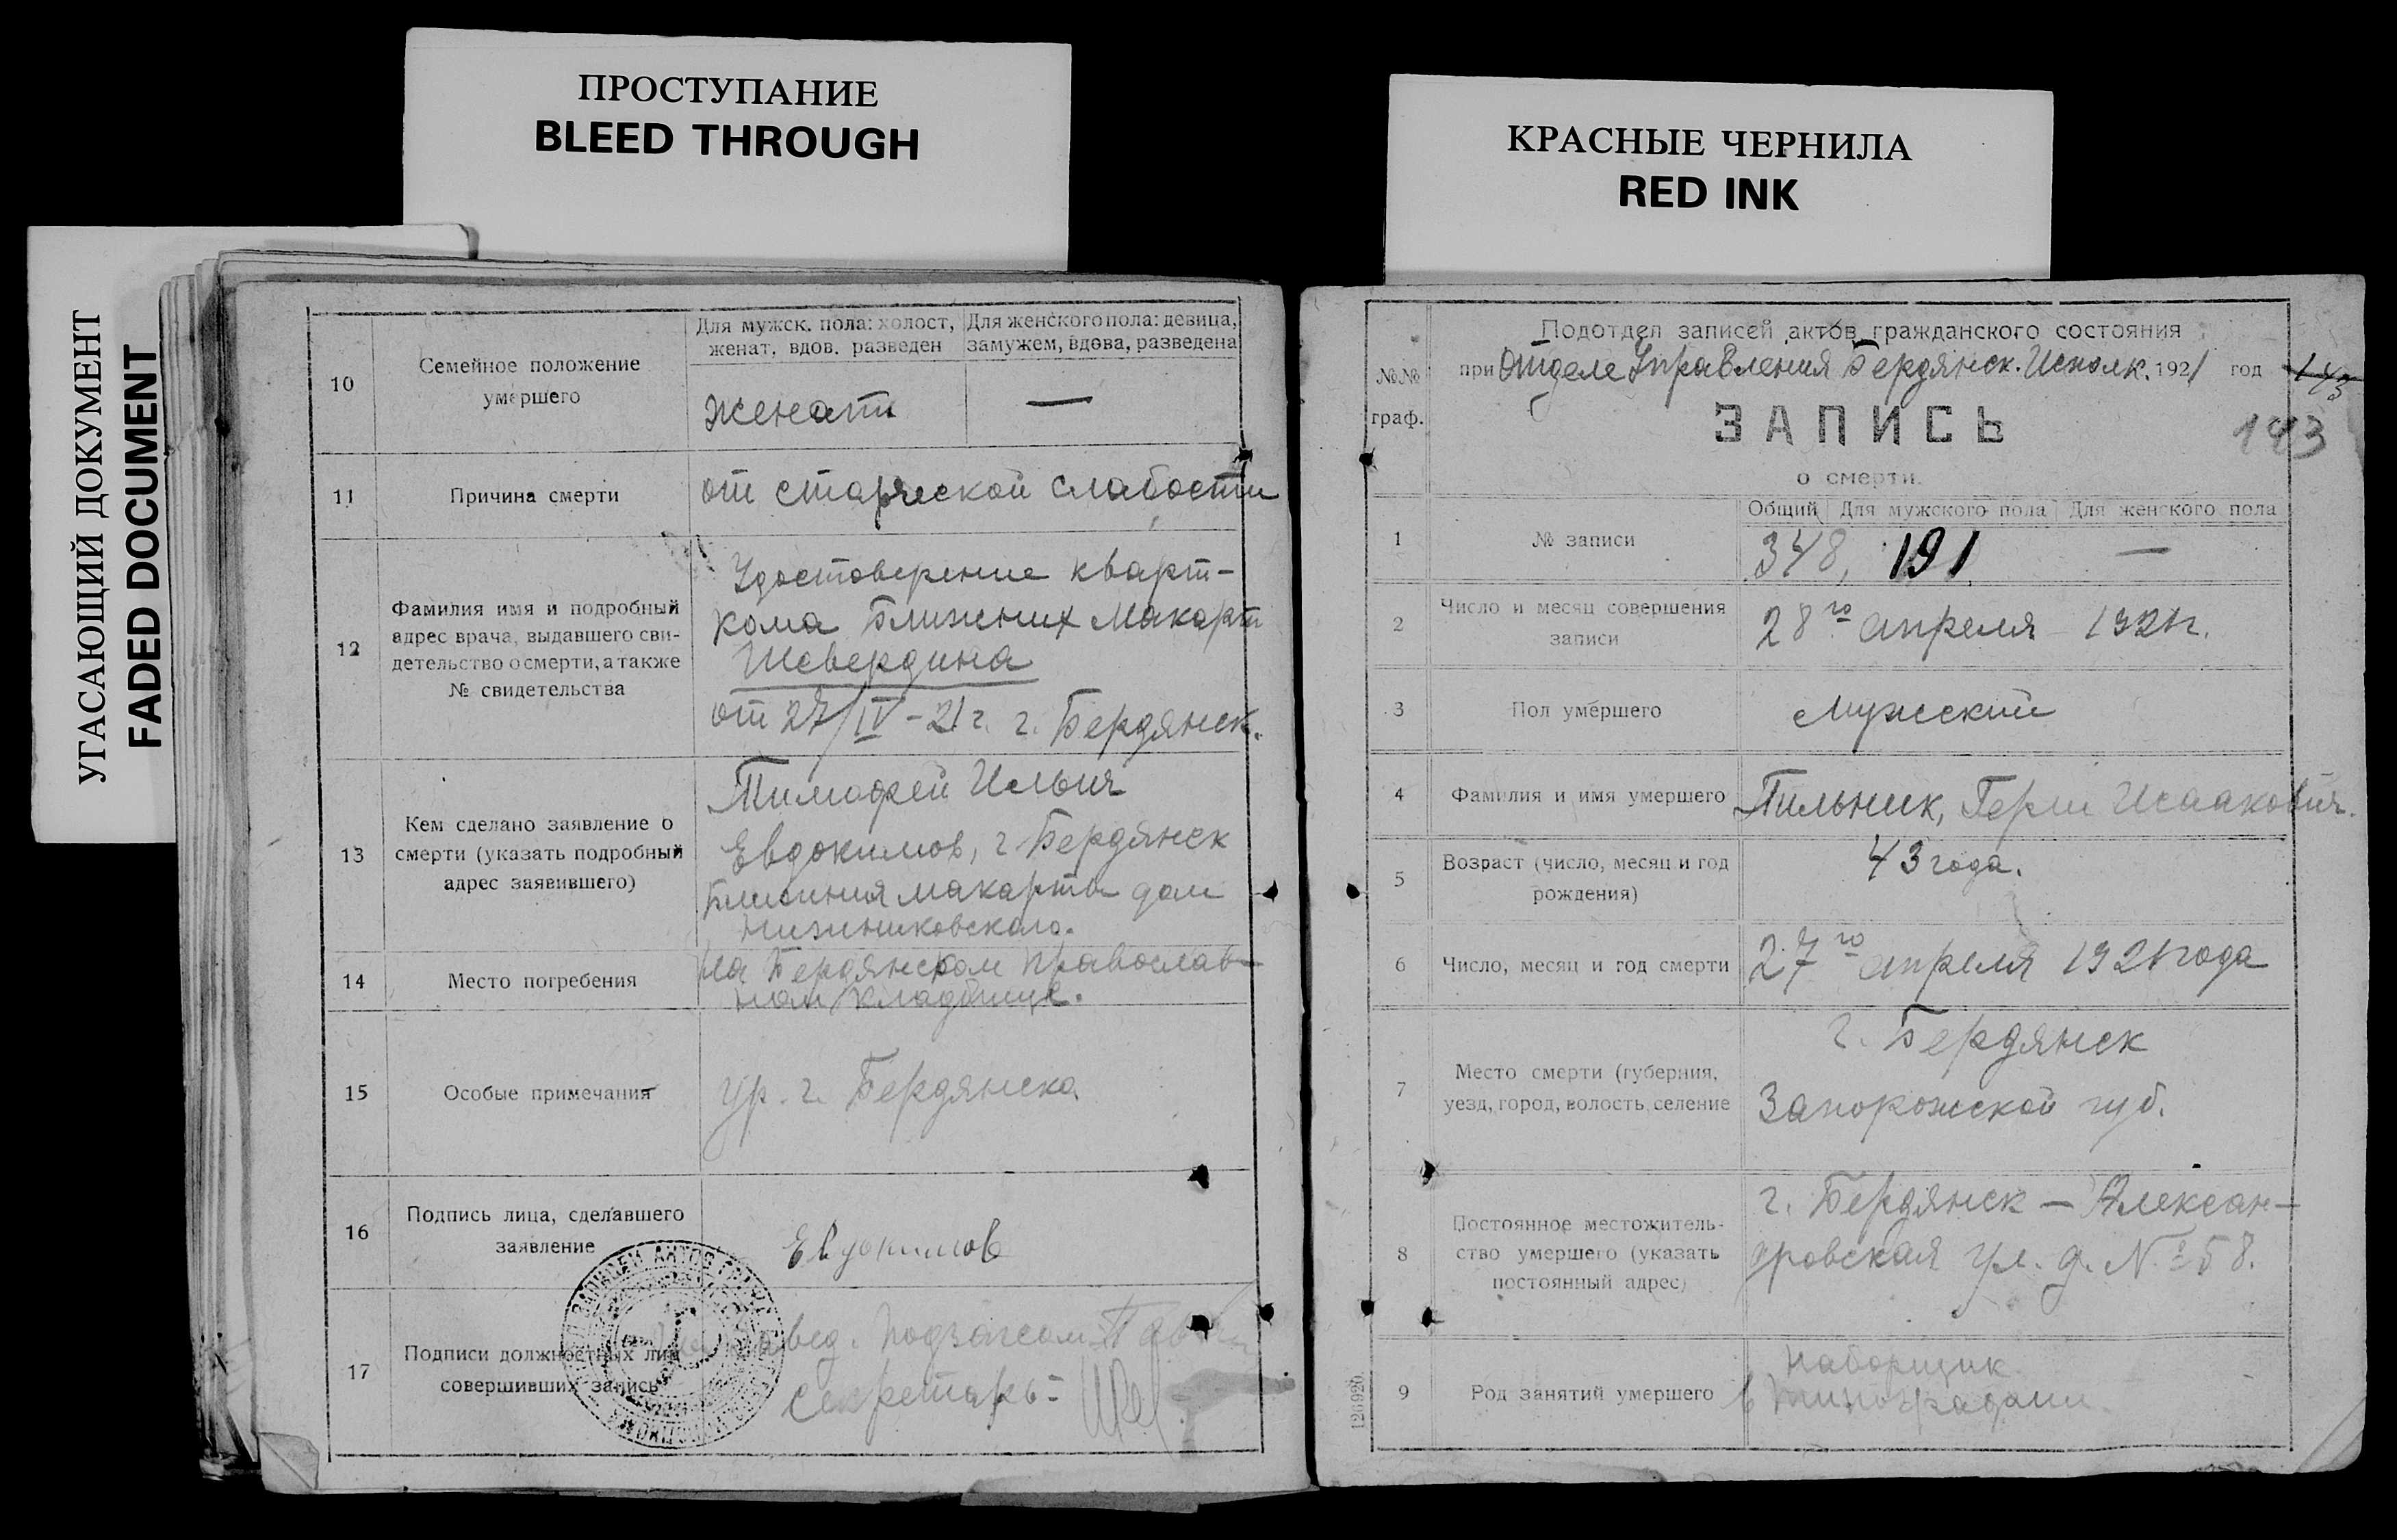 ПРОСТУПАНИЕ
BLEED THROUGH
КРАСНЫЕ ЧЕРНИЛА
RED INK
УГАСАЮЩИЙ ДОКУМЕНТ
FADED DOCUMENT
10
Семейное положение
умершего
Для мужск. пола: холост,
женат, вдов. разведен
Для женского пола: девица,
замужем, вдова, разведена
Женат
—
11
Причина смерти
от старческой слабости
12
Фамилия имя и подробный
адрес врача, выдавшего сви-
детельство о смерти, а также
№ свидетельства
Удостоверение кварт-
кома Ближних Макорт
Шевердина
от 27/IV-21 г. г. Бердянск.
13
Кем сделано заявление о
смерти (указать подробный
адрес заявившего)
Тимофей Ильич
Евдокимов, г. Бердянск
Ближния макорты дом
14
Место погребения
на Бердянском православ-
ном кладбище.
15
Особые примечания
ур. г. Бердянска
16
Подпись лица, сделавшего
заявление
Евдокимов
17
Подписи должностных лиц
совершивших запись
Завед. подзагсом
Секретарь:
№№
граф.
Подотдел записей актов гражданского состояния
при Отделе Управления Бердянск. Исполк. 1921 год
143
ЗАПИСЬ
143
о смерти.
1
№ записи
Общий
Для мужского пола
Для женского пола
348,
191
—
2
Число и месяц совершения
записи
28го апреля 1921г.
3
Пол умершего
мужский
4
Фамилия и имя умершего
Пильник, Герш Исаакович.
5
Возраст (число, месяц и год
рождения)
43 года.
6
Число, месяц и год смерти
27го апреля 1921 года
7
Место смерти (губерния,
уезд, город, волость, селение
г. Бердянск
Запорожской губ.
8
Постоянное местожитель-
ство умершего (указать
постоянный адрес)
г. Бердянск — Алексан-
дровская ул. д. № 58.
9
Род занятий умершего
наборщик
в типографии
126920